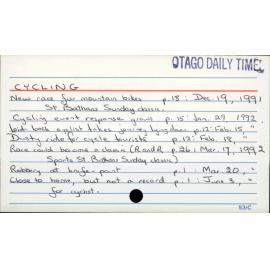 OTAGO DAILY TIMES
CYCLING
New race for mountain bikes p.18: Dec. 19, 1991
St. Bathans Sunday classic.
Cycling event response grows p.15: Jan. 29, 1992
Laid back cyclist takes you're p.12: Feb. 15, "
Dusty ride for cycle tourists p.12: Feb. 18, "
Race could become a classic (R and R p.26: Mar. 17, 1992
Sports St. Bathans Sunday classic)
Robbery at knife-point p.1: Mar. 20, "
Close to home, but not a record p.1: June 3, "
for cyclist.